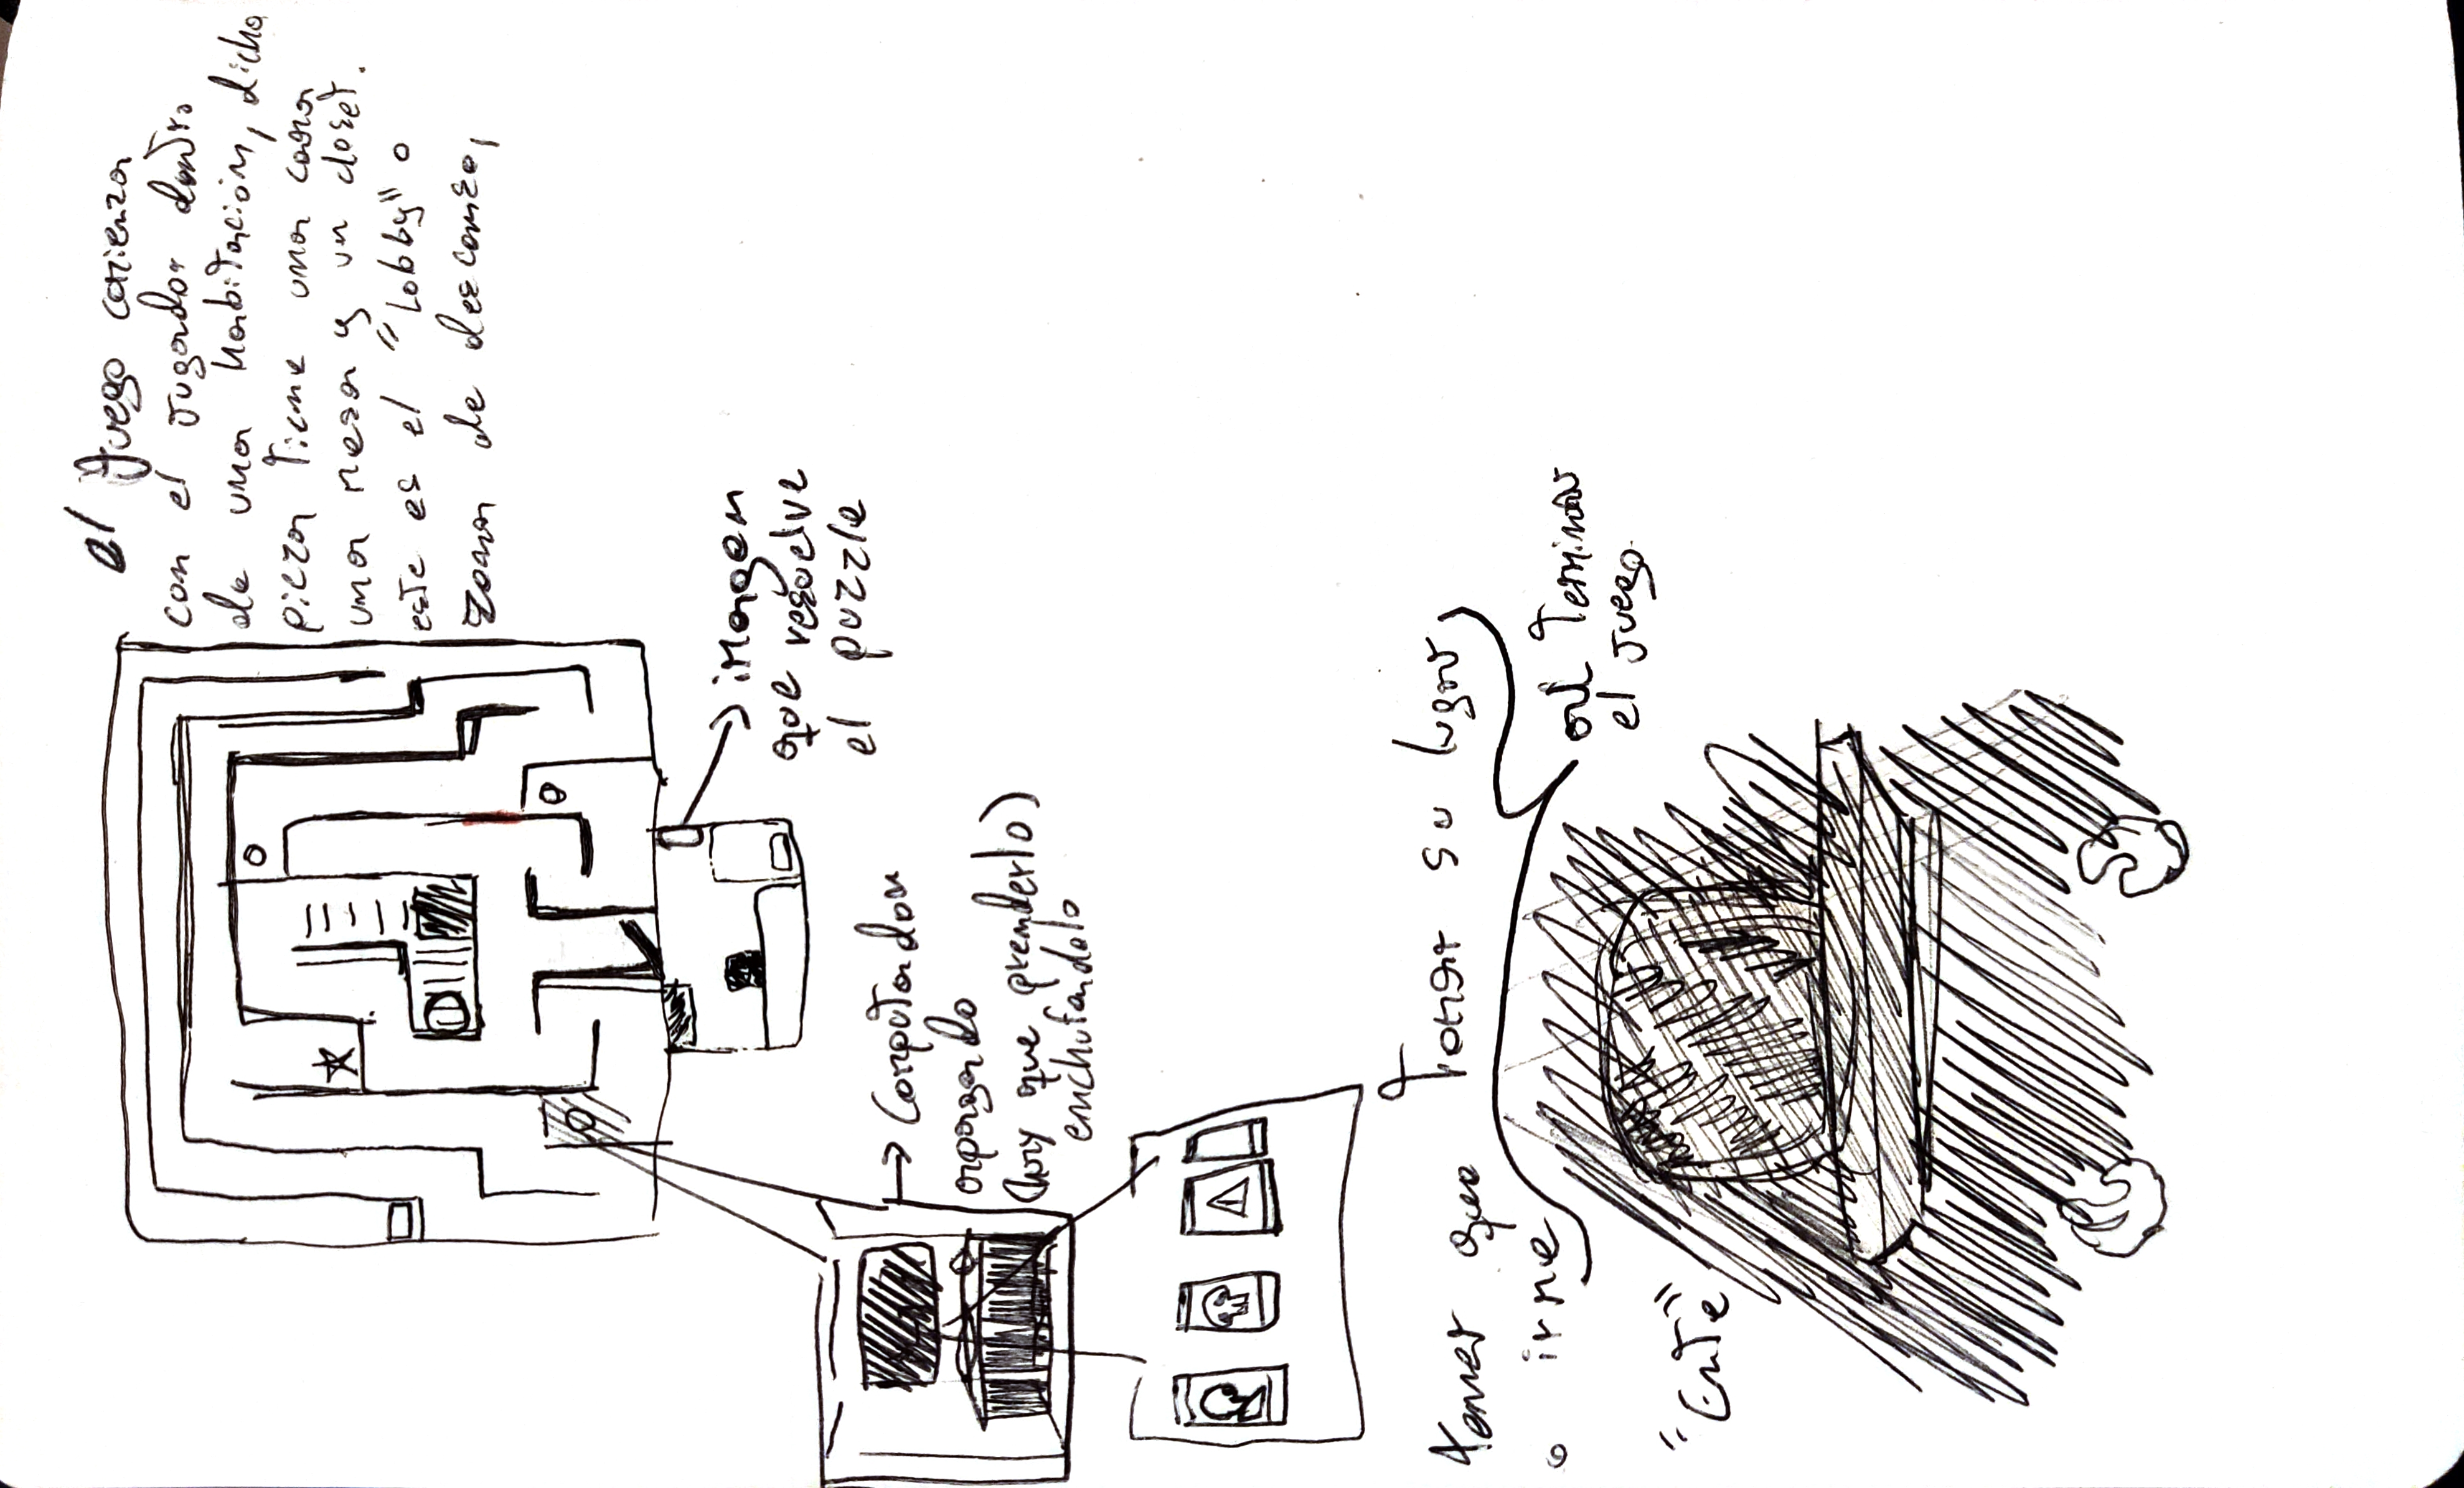 el Juego comienza
con el jugador dentro
de una habitación, dicha
pieza tiene una cama
una mesa y un closet.
este es el "Lobby" o
zona de descanso,
imagen
que resuelve
el puzzle
Computador
apagado
(hay que prenderlo)
enchufandolo
tener que tomar su lugar
o irme
al terminar
el juego.
"Ente"